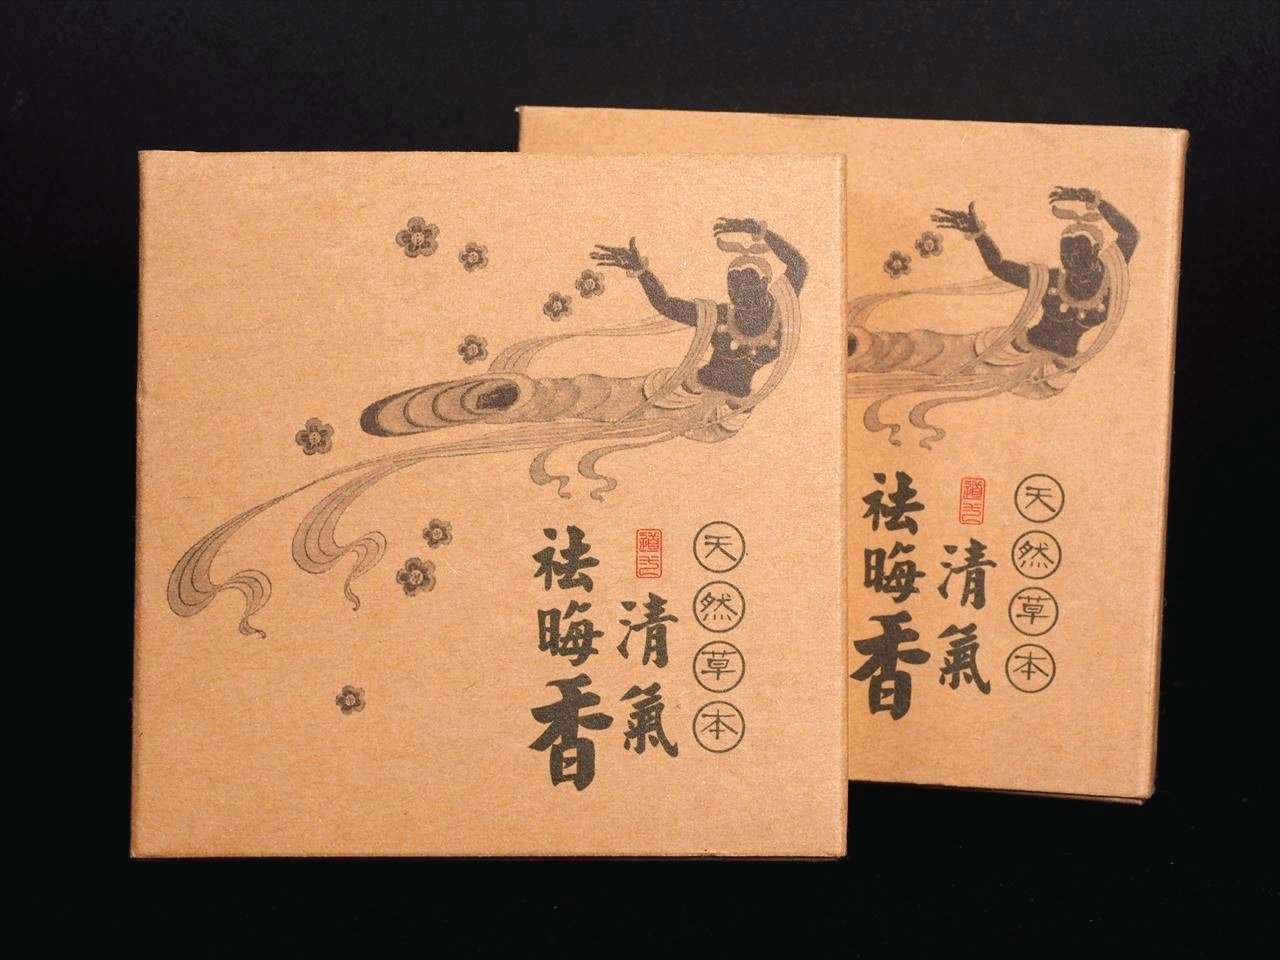 天然草本
清氣
祛晦香
天然草本
清氣
祛晦香